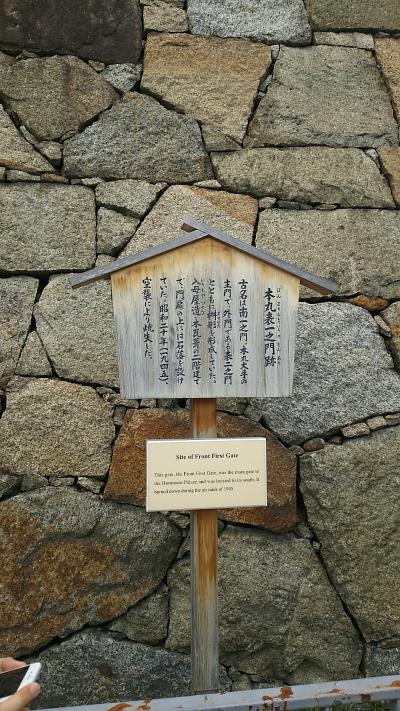 本丸表一之門跡
古名は南一之門。本丸大手の
主門で、外門である表二之門
とともに桝形を形成していた。
入母屋造本瓦葺の二階建て
で、門扉の上には石落を設け
ていた。昭和二十年(一九四五)、
空襲により焼失した。
Site of Front First Gate
This gate, the Front First Gate, was the main gate to
the Hommaru Palace and was located to its south. It
burned down during the air raids of 1945.